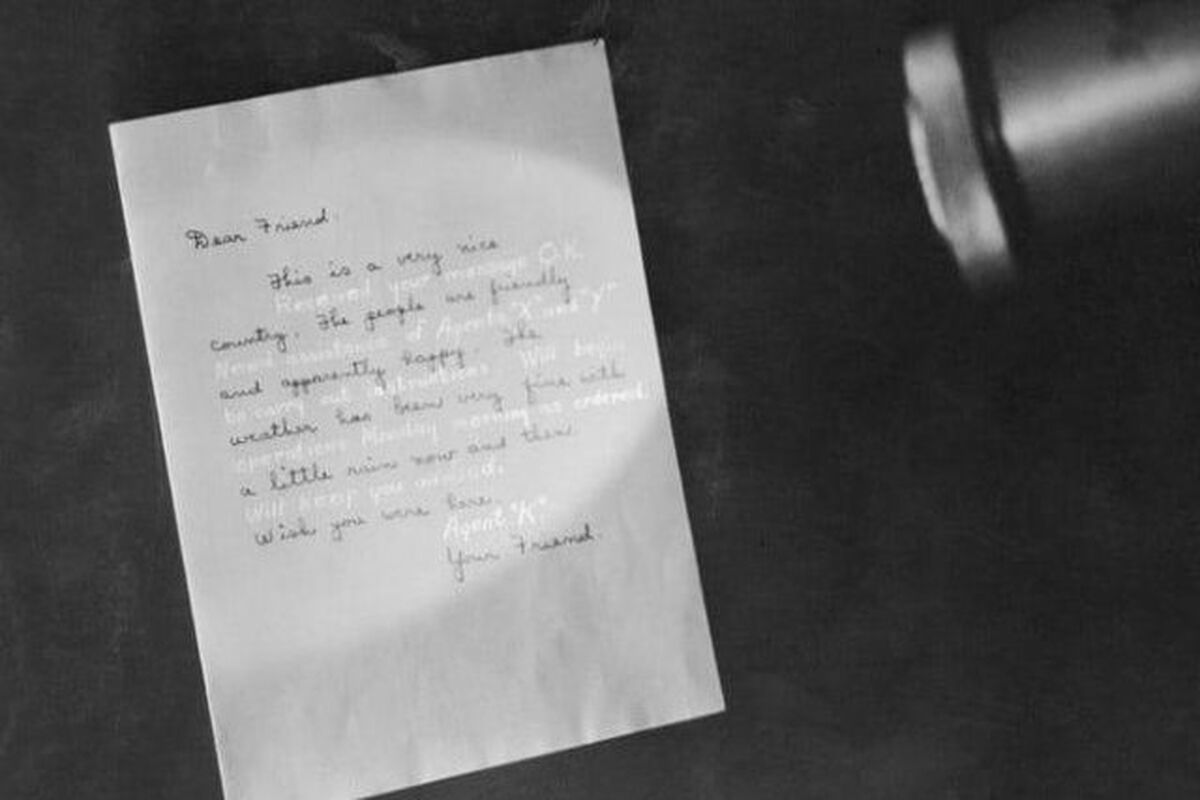 Dear Friend.
This is a very nice
Received your message O.K.
country. The people are friendly
Need assistance of Agents "X" and "Y"
and apparently happy. The
to carry out instructions. Will begin
weather has been very fine with
operations Monday morning as ordered.
a little rain now and then.
Will keep you advised.
Wish you were here.
Agent "K"
Your Friend.